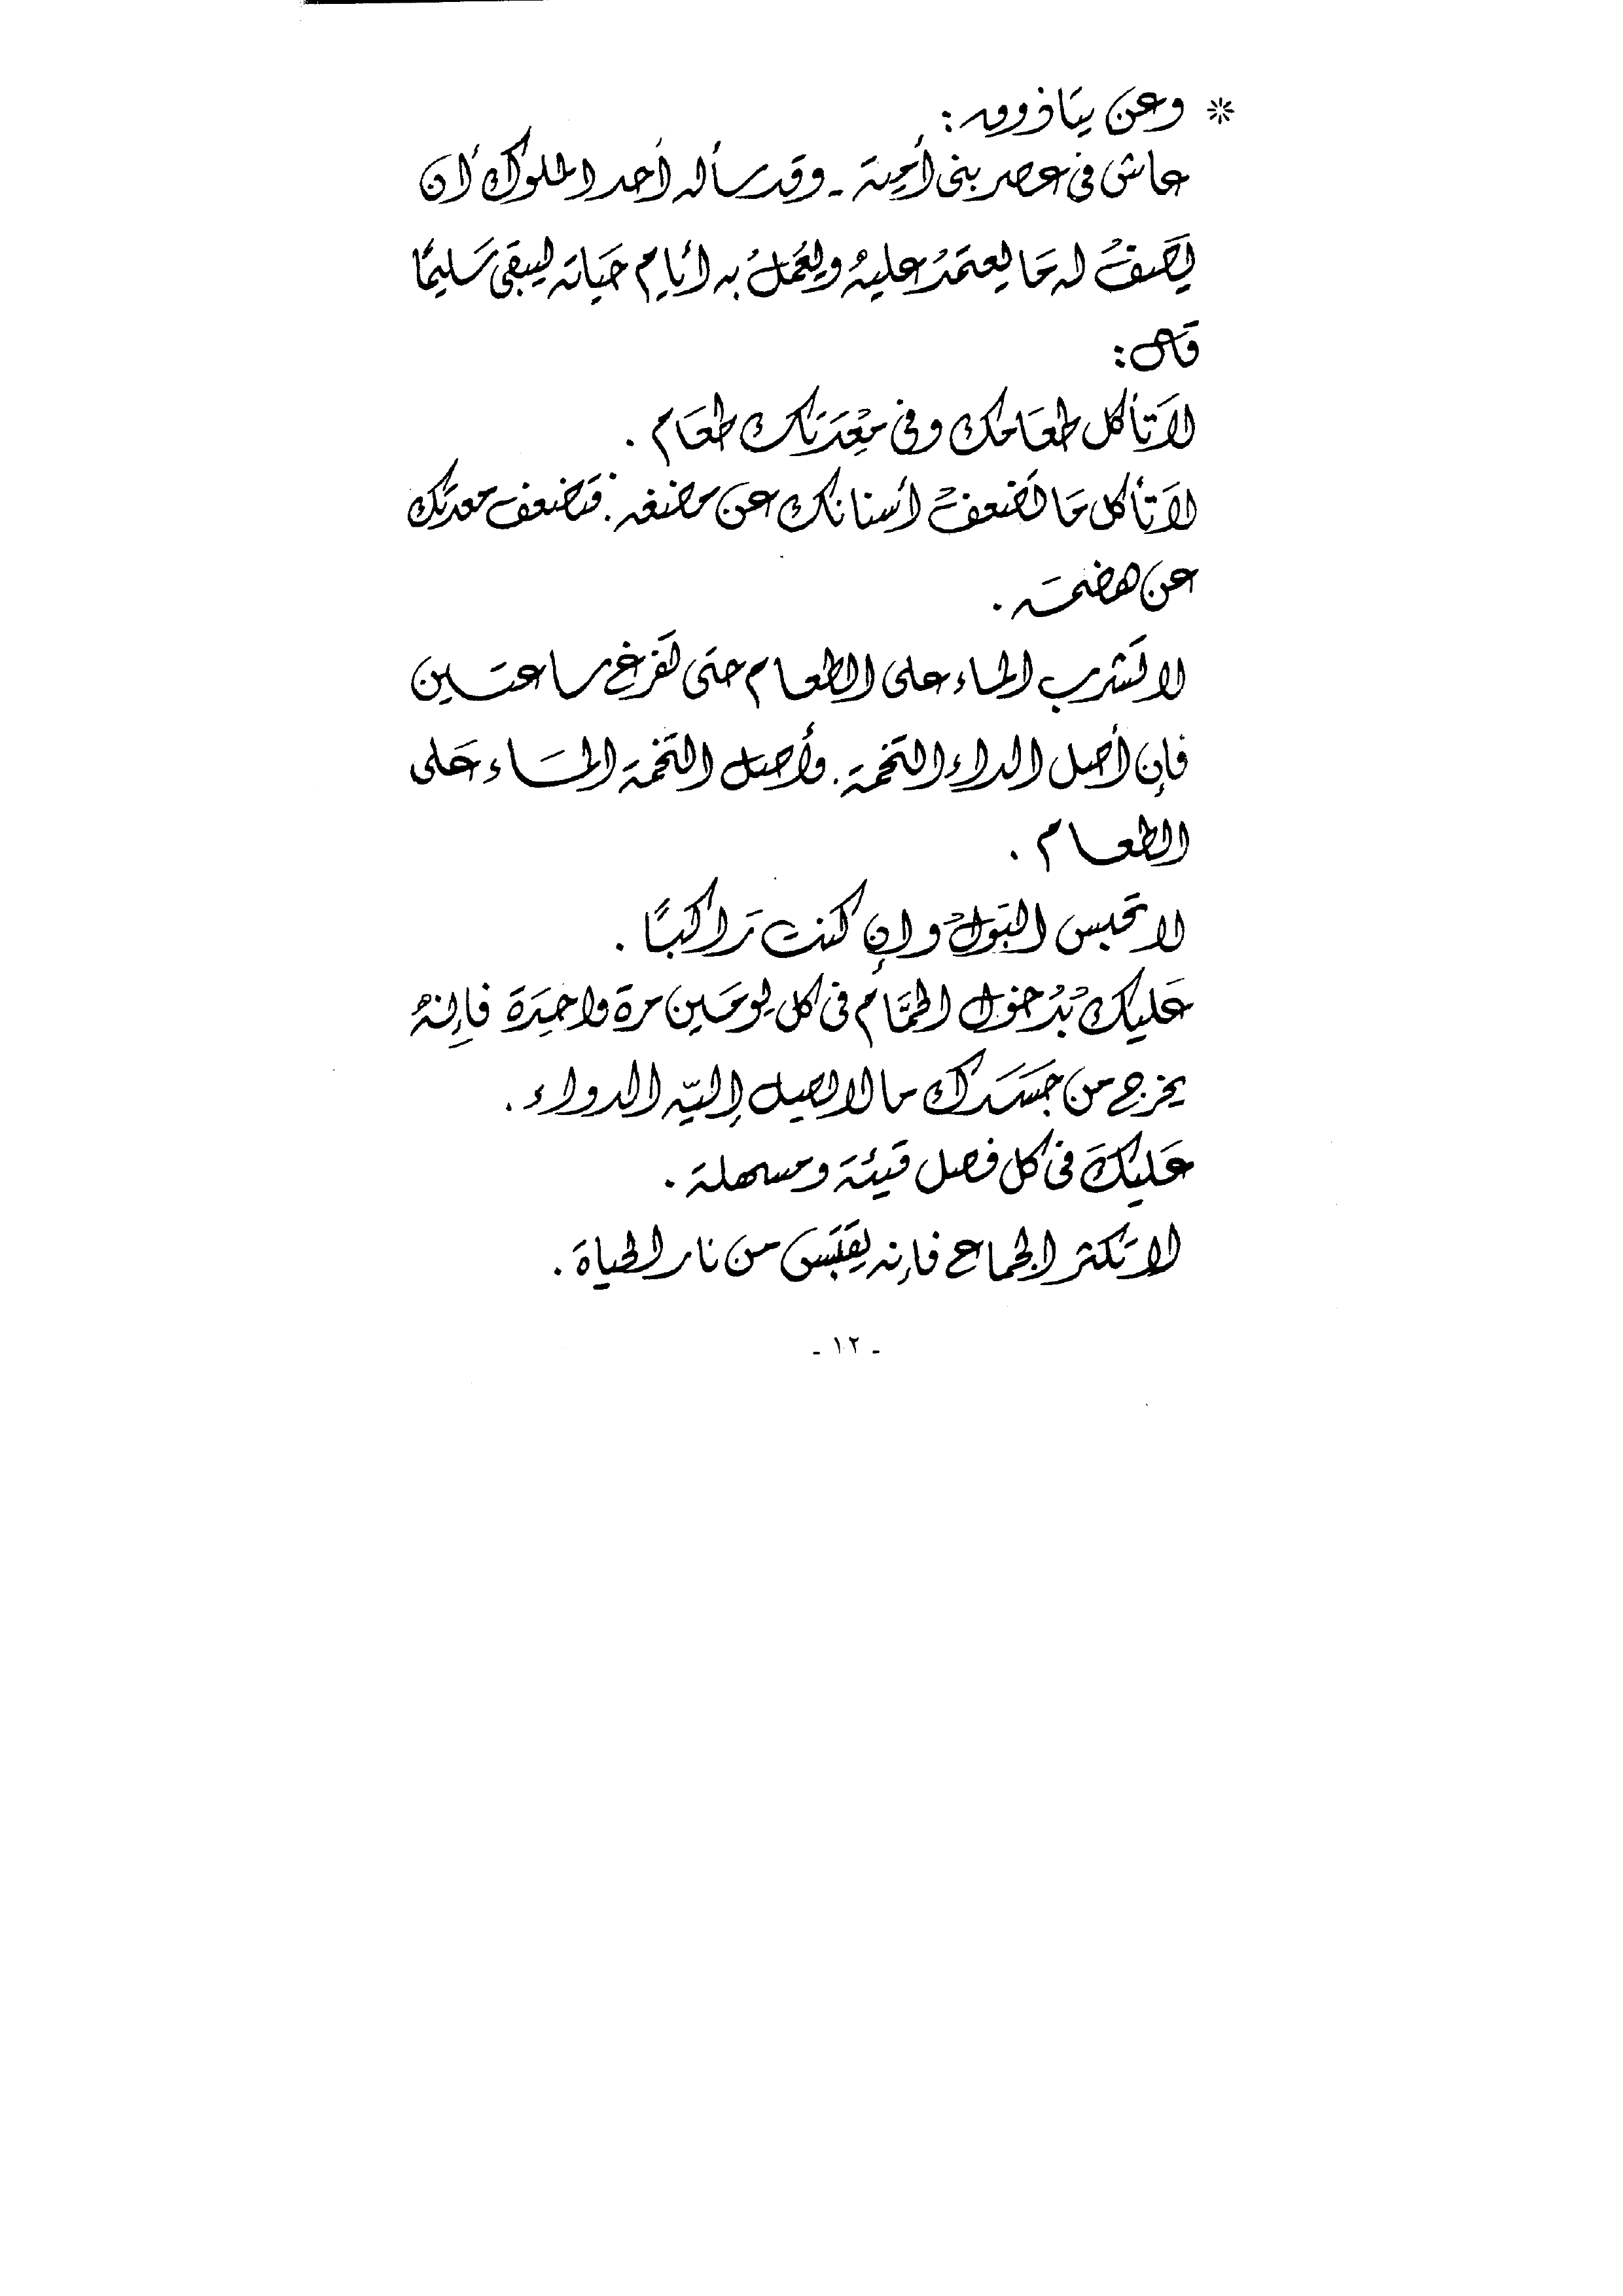 * وعن يتاذوق:
عاش في عصر بنى أمية - وقد سأله أحد الملوك أن
يَصَفْ له مَا يعتمَدُ عليهُ ويعَملُ به أيام حَياته ليبقى سَليمًا
قال:
لاَ تأكل طعَامك وفى مِعْدَتك طعَام .
لاَ تأكل مَا تَضعفْ أسنانك عن مضغه . فتَضعف معدتك
عن هضمَه .
لا تَشرب الماء على الطعام حتى تَفرغ ساعتَين
فإن أصل الداء التخمة . وأصل التخمة المَاء عَلى
الطعام .
لا تحبس البَولْ وإن كنت رَاكبًا .
عَليك بْدُخول الحمَّام فى كل يومَين مرة واحِدَة فإنهُ
يخرج من جَسَدك ما لا يصل إليّه الدواء .
عَليكَ فى كل فصل قيئَة ومسهلة .
لا تَكثر الجماع فإنه يقتَبَس من نار الحياة .
- ١٢ -